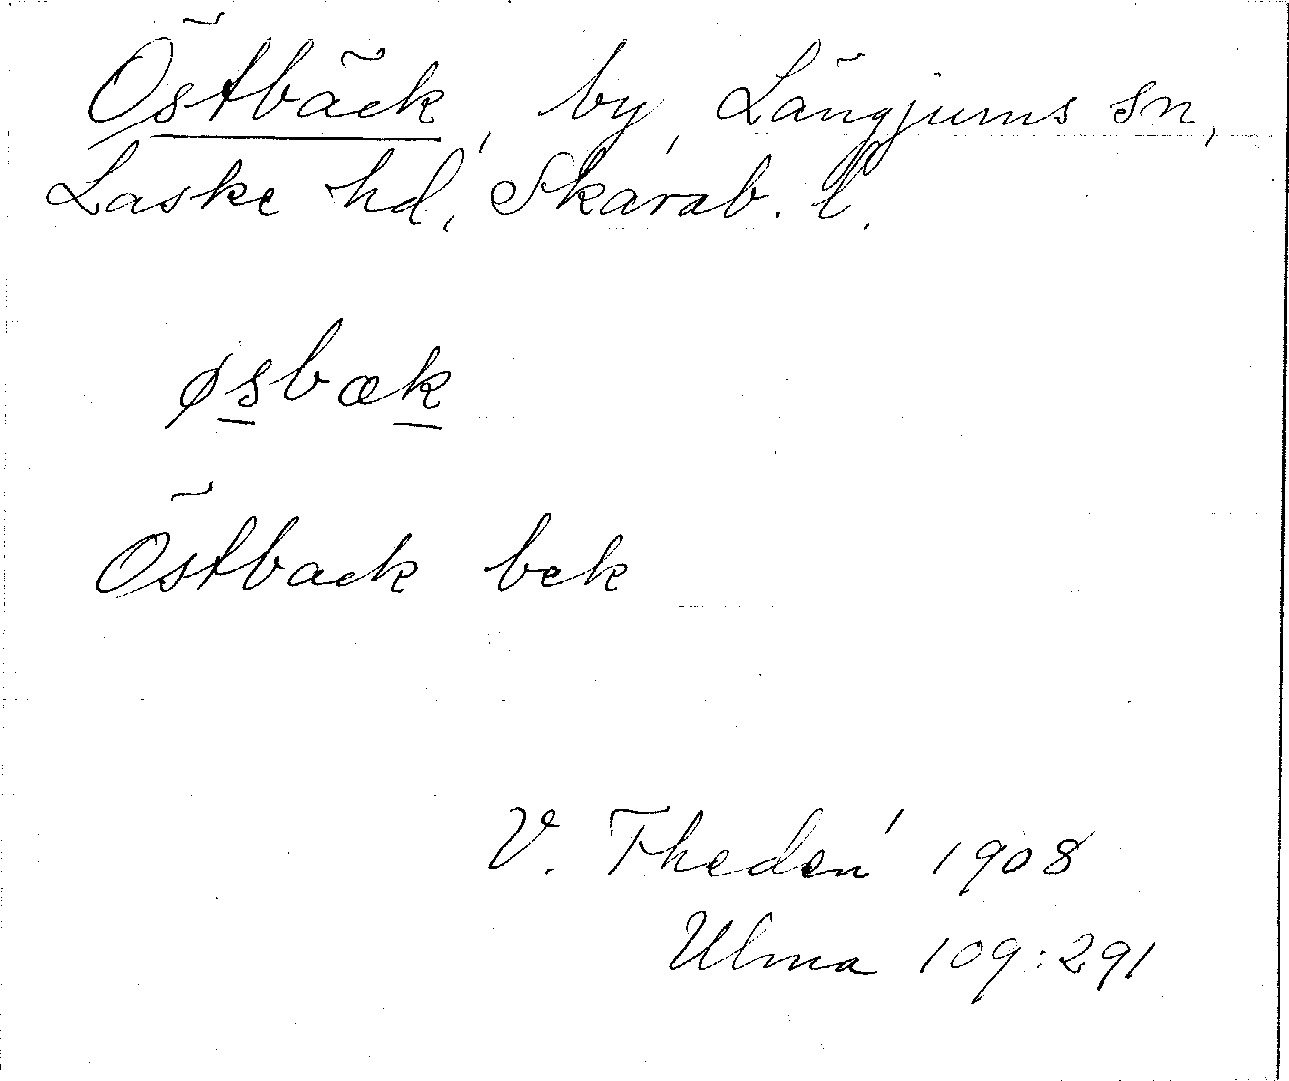 Östbäck, by, Långjums sn,
Laske hd, Skarab. l.
øsbæk
Östback bek
V. Thedén 1908
Ulma 109:291